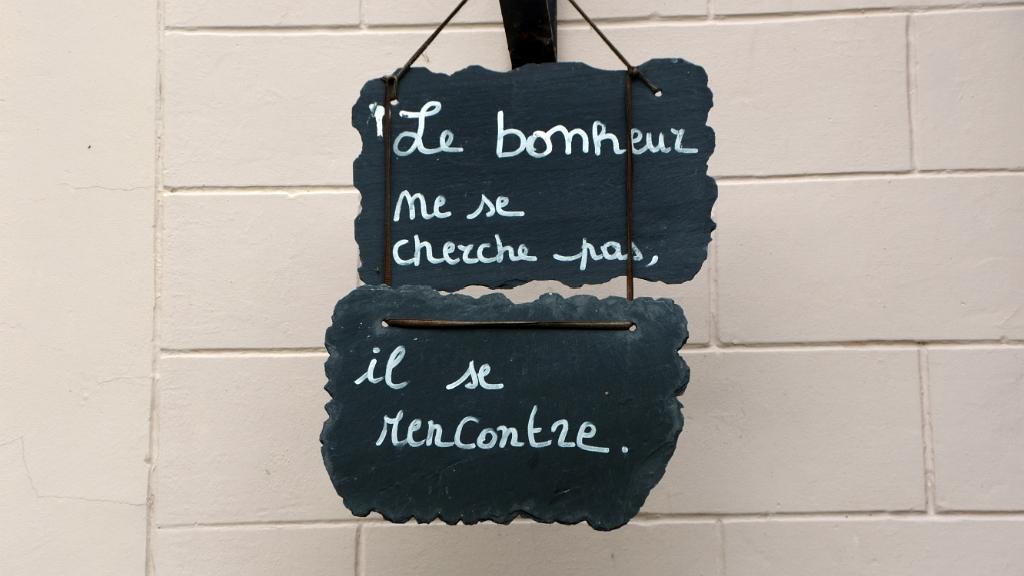 Le bonheur
ne se
cherche pas,
il se
rencontre.